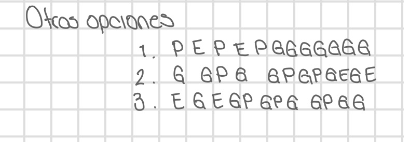 Otras opciones
1. P E P E P G G G G G G G
2. G G P G G P G P G E G E
3. E G E G P G P G G P G G